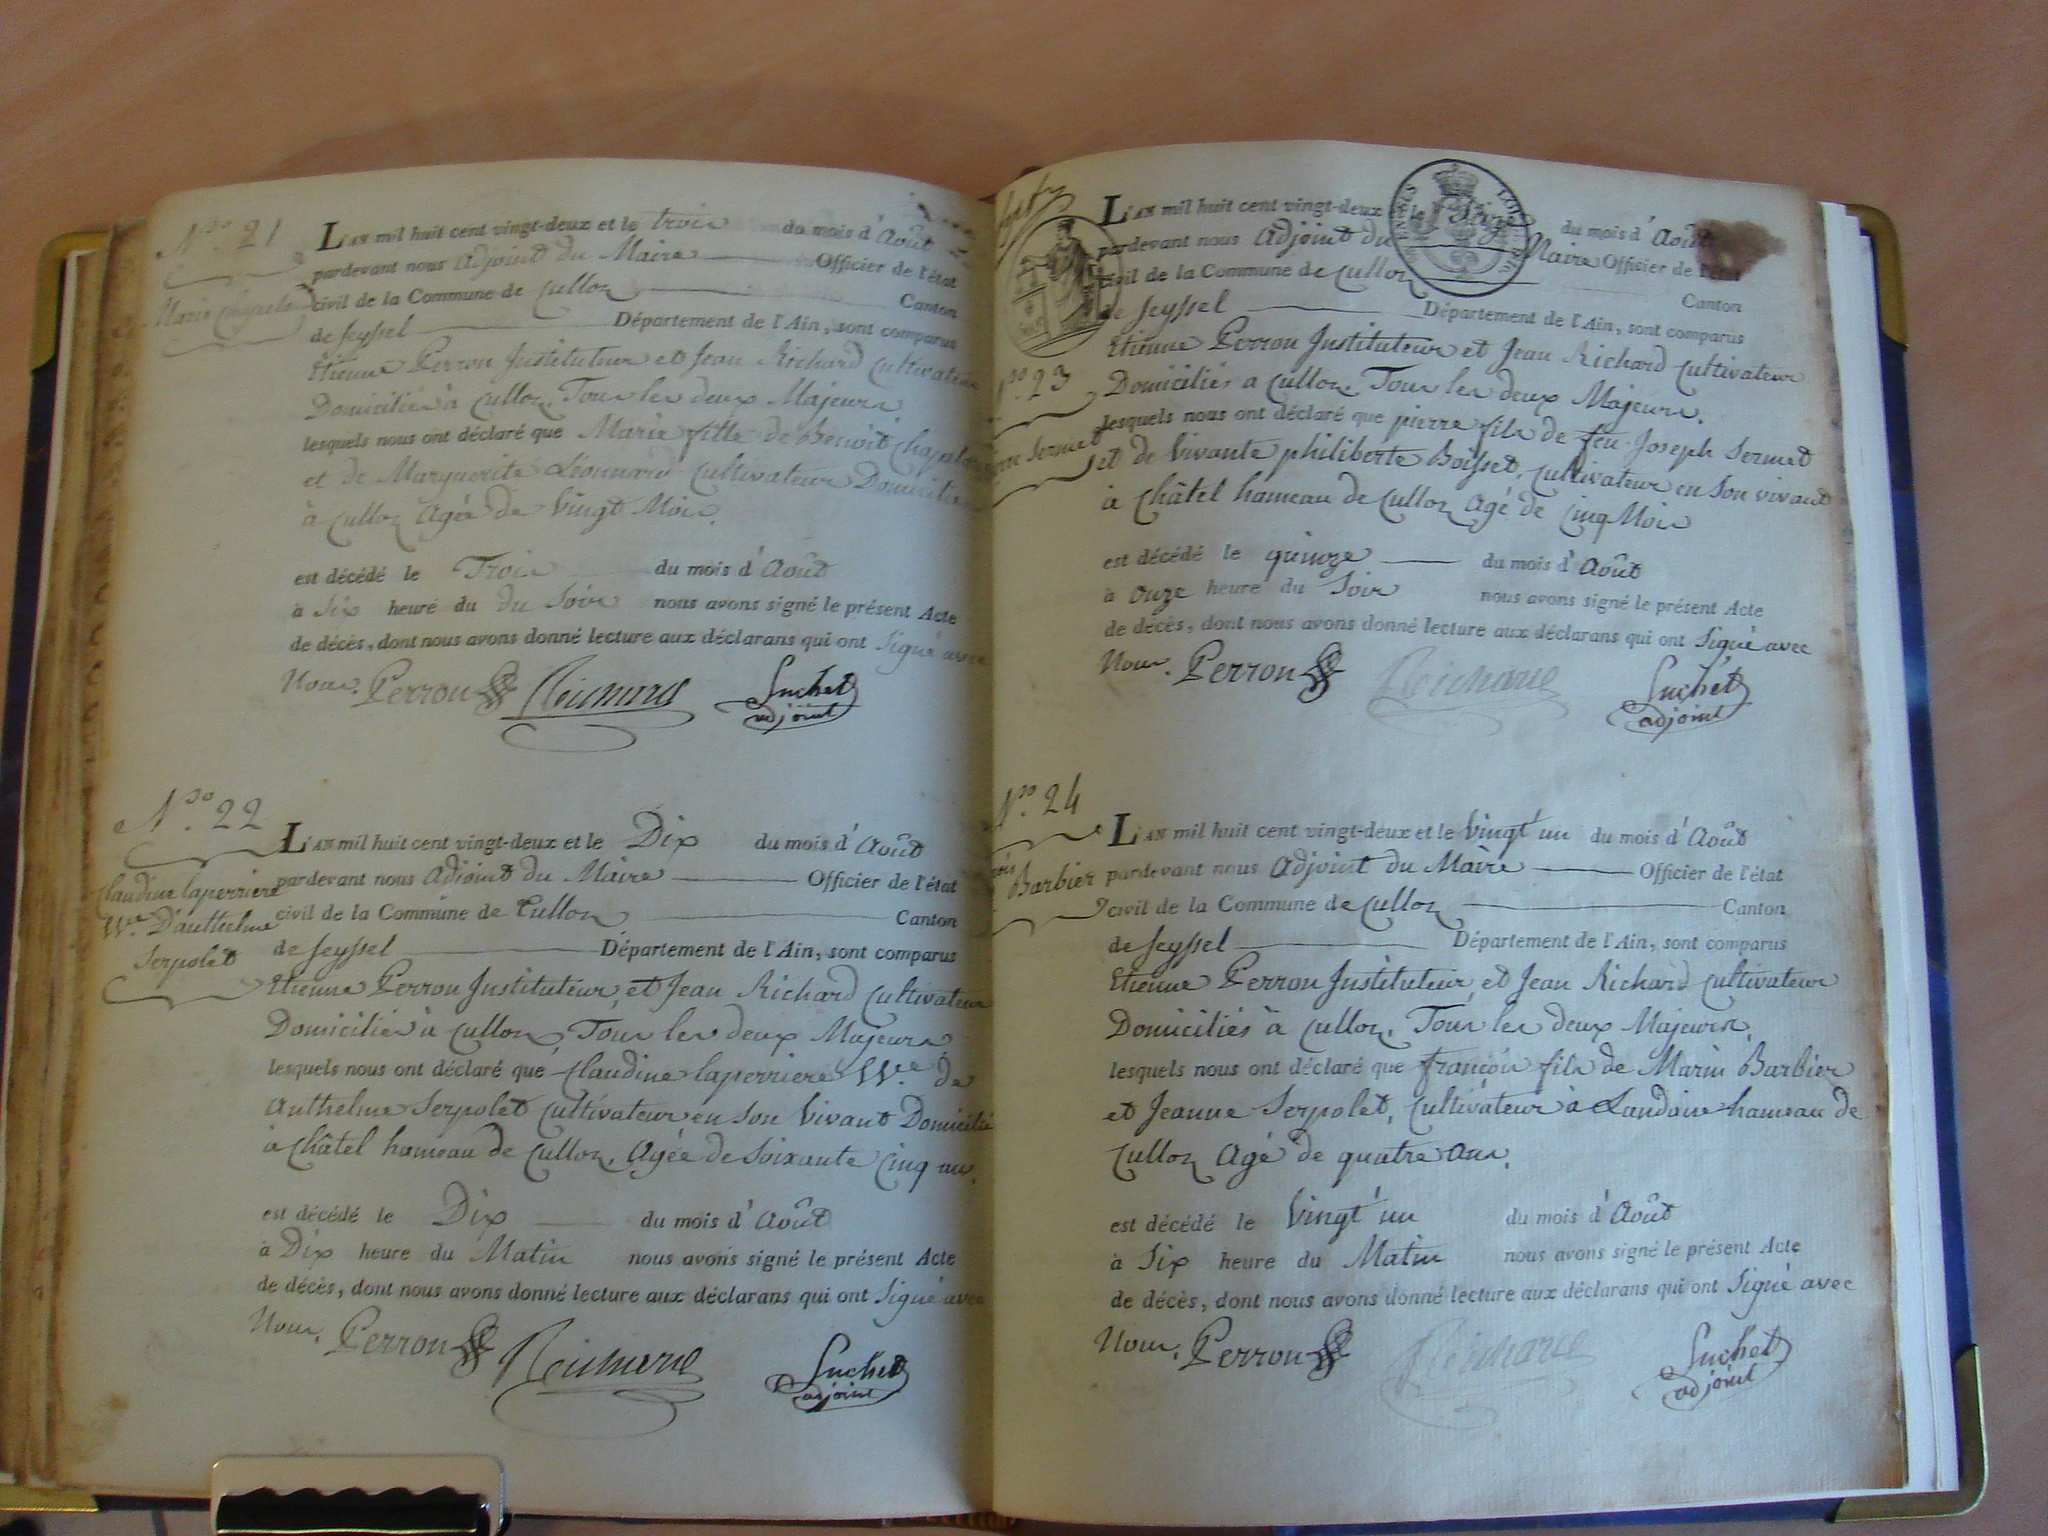 N.ro 21
Marie Chapelu
L'AN mil huit cent vingt-deux et le trois du mois d'Août
pardevant nous Adjoint du Maire Officier de l'état
civil de la Commune de Culloz Canton
de Seyssel Département de l'Ain, sont comparus
Etienne Perron Instituteur et Jean Richard Cultivateur
Domiciliés à Culloz, Tous les deux Majeurs
lesquels nous ont déclaré que Marie fille de Benoit
et de Marguerite Léonnard Cultivateur Domicilié
à Culloz Agée de Vingt Mois.
est décédé le Trois du mois d'Août
à Six heure du du Soir nous avons signé le présent Acte
de décès, dont nous avons donné lecture aux déclarans qui ont Signé avec
Nous. Perron Richard Suchet
adjoint
N.ro 22
Claudine laperriere
V.ve D'anthelme
Serpolet
L'AN mil huit cent vingt-deux et le Dix du mois d'Août
pardevant nous Adjoint du Maire Officier de l'état
civil de la Commune de Culloz Canton
de Seyssel Département de l'Ain, sont comparus
Etienne Perron Instituteur, et Jean Richard Cultivateur
Domiciliés à Culloz, Tous les deux Majeurs
lesquels nous ont déclaré que Claudine laperriere V.ve de
Anthelme Serpolet Cultivateur en Son Vivant Domicilié
à Châtel hameau de Culloz, Agée de Soixante Cinq ans.
est décédé le Dix du mois d'Août
à Dix heure du Matin nous avons signé le présent Acte
de décès, dont nous avons donné lecture aux déclarans qui ont Signé avec
Nous. Perron Richard Suchet
adjoint
N.ro 23
Sermet
L'AN mil huit cent vingt-deux et le du mois d'Août
pardevant nous Adjoint du Maire Officier de l'état
civil de la Commune de Culloz Canton
de Seyssel Département de l'Ain, sont comparus
Etienne Perron Instituteur et Jean Richard Cultivateur
Domiciliés a Culloz. Tous les deux Majeurs.
lesquels nous ont déclaré que pierre fils de feu Joseph Sermet
et de Vivante philiberte Boisset, Cultivateur en Son vivant
à Châtel hameau de Culloz Agé de Cinq Mois
est décédé le quinze du mois d'Août
à Onze heure du Soir nous avons signé le présent Acte
de décès, dont nous avons donné lecture aux déclarans qui ont Signé avec
Nous. Perron Richard Suchet
adjoint
N.ro 24
Barbier
L'AN mil huit cent vingt-deux et le Vingt un du mois d'Août
pardevant nous Adjoint du Maire Officier de l'état
civil de la Commune de Culloz Canton
de Seyssel Département de l'Ain, sont comparus
Etienne Perron Instituteur, et Jean Richard Cultivateur
Domiciliés à Culloz. Tous les deux Majeurs,
lesquels nous ont déclaré que françois fils de Marin Barbier
et Jeanne Serpolet, Cultivateur à Landaize hameau de
Culloz Agé de quatre Ans.
est décédé le Vingt un du mois d'Août
à Six heure du Matin nous avons signé le présent Acte
de décès, dont nous avons donné lecture aux déclarans qui ont Signé avec
Nous. Perron Richard Suchet
adjoint